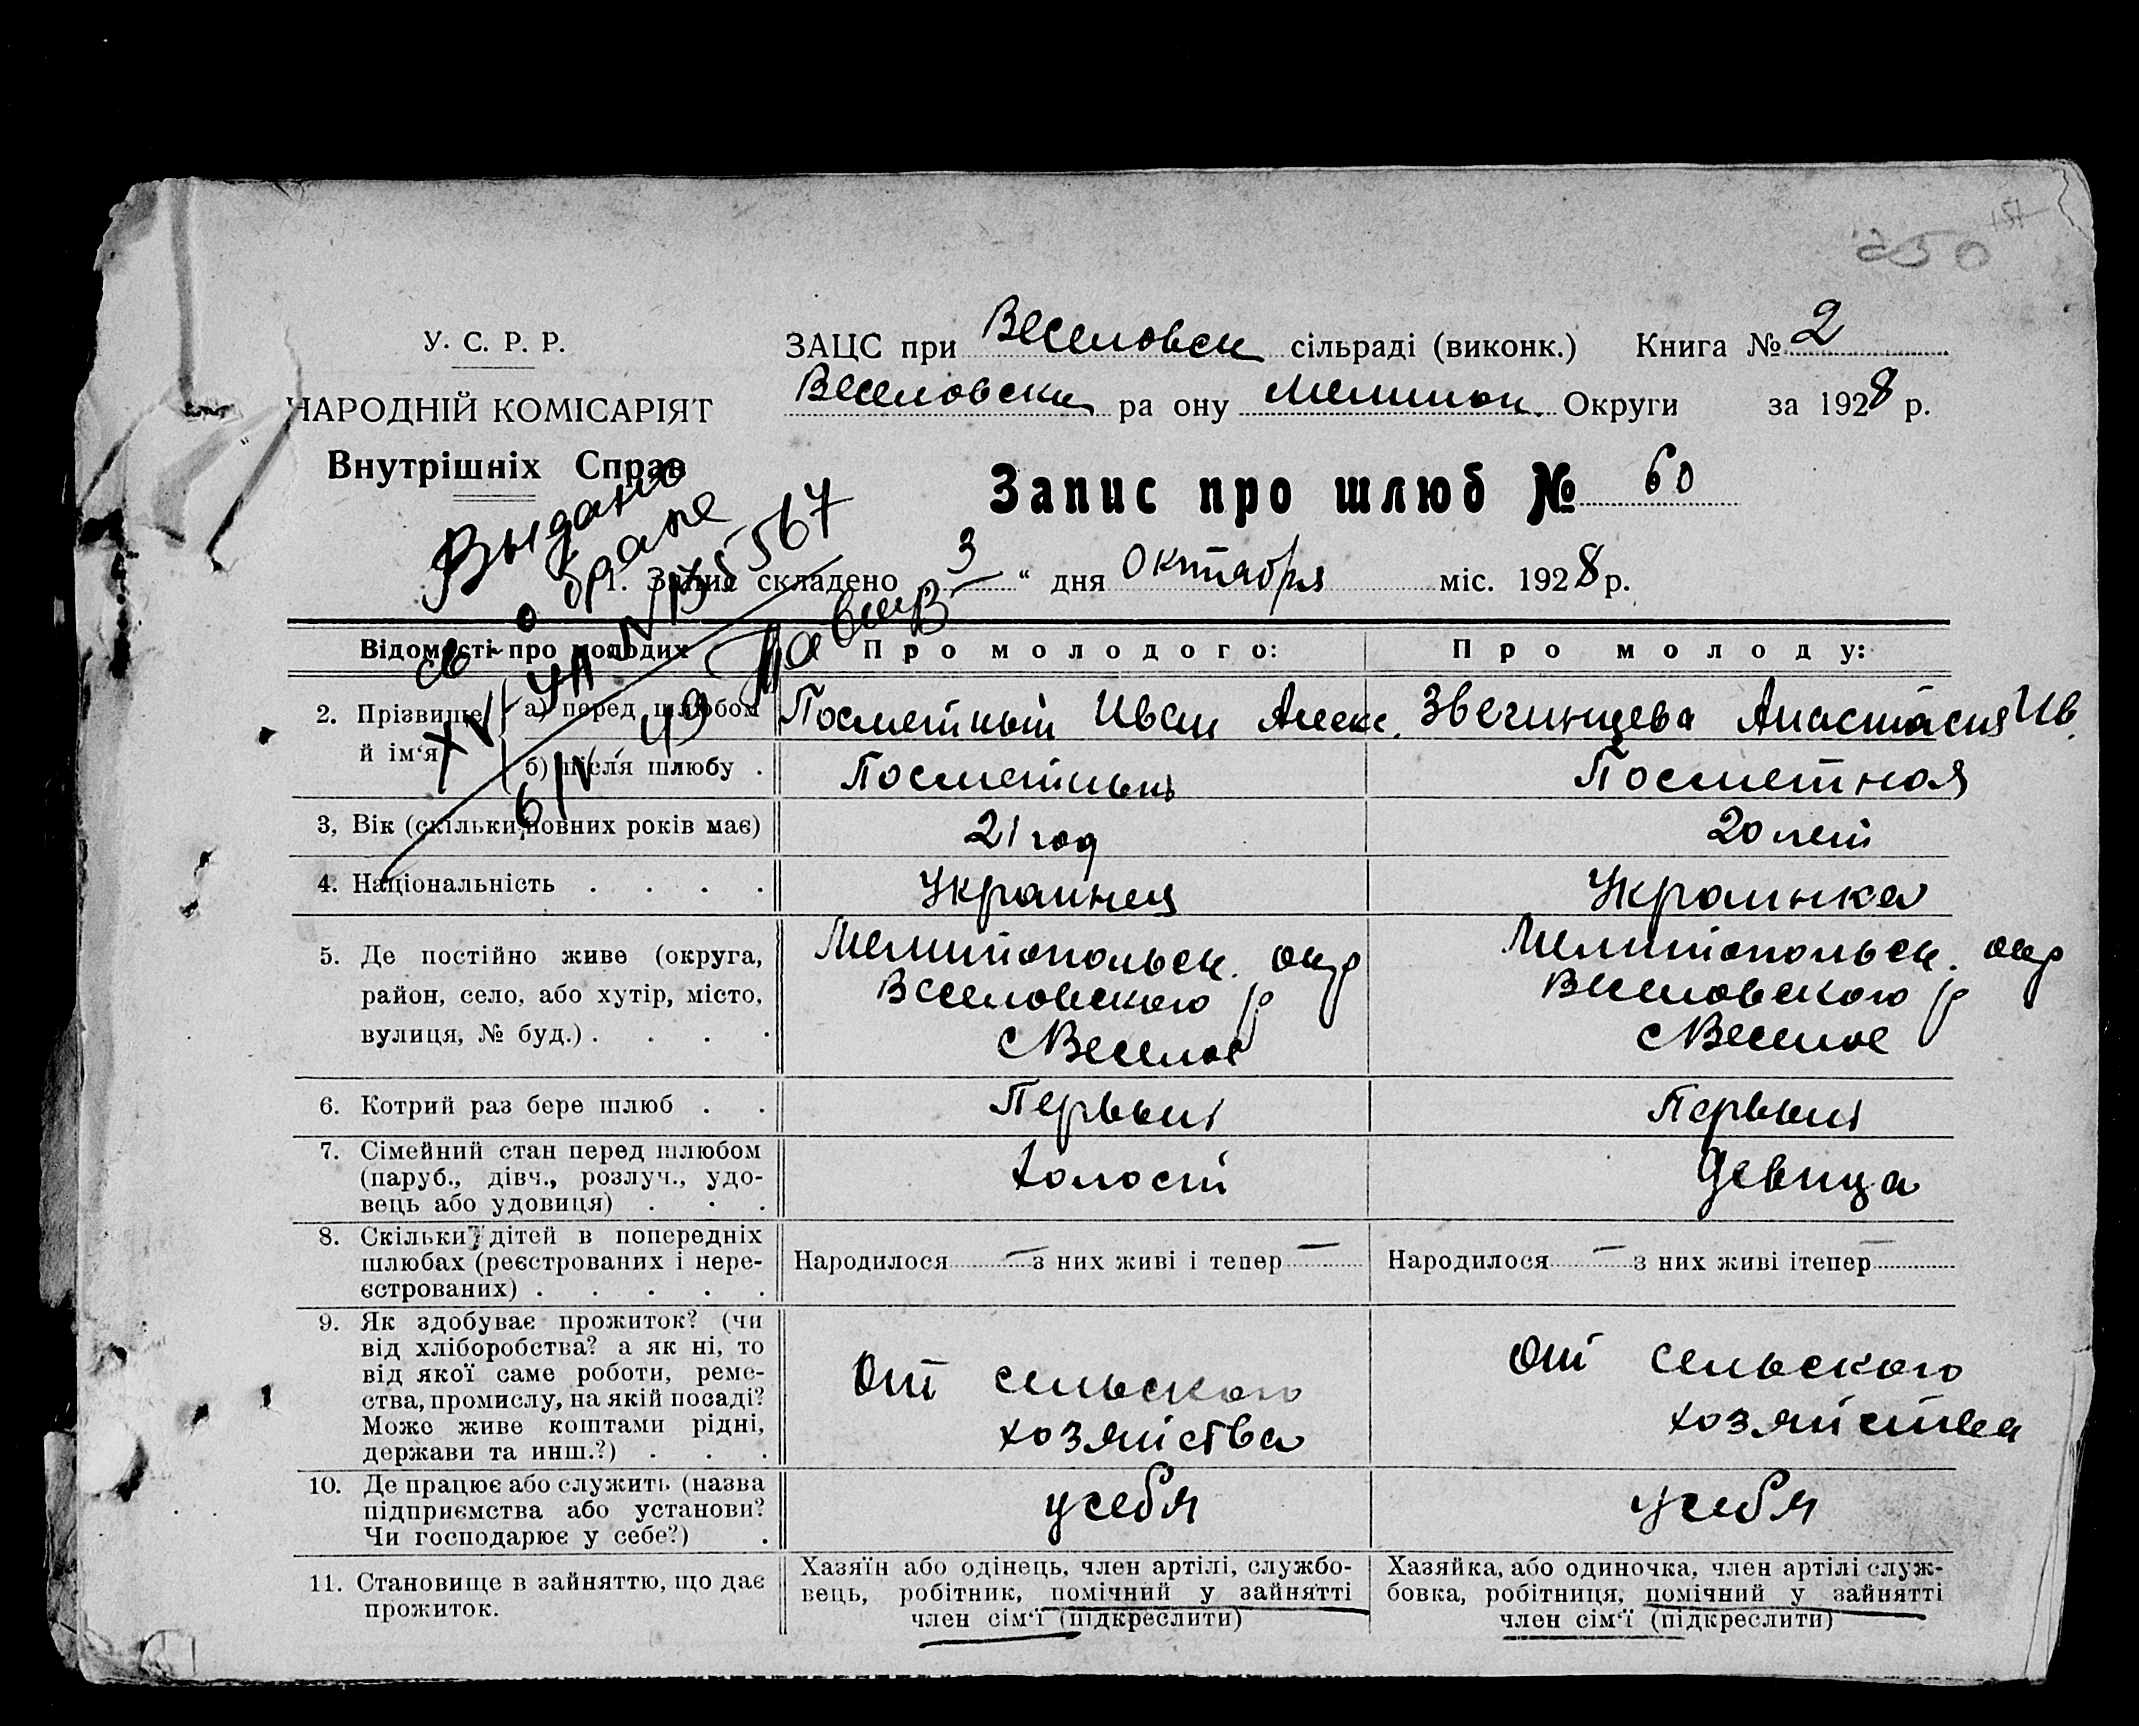 250
151
У. С. Р. Р.
НАРОДНІЙ КОМІСАРІЯТ
Внутрішніх Справ
ЗАЦС при Веселовск сільраді (виконк.) Книга № 2
Веселовски ра ону Мелитоп. Округи за 1928 р.
Запис про шлюб № 60
Выдано
св-о о браке
1. Запис складено 3 “ дня Октября міс. 1928 р.
Відомості про молодих
Про молодого:
Про молоду:
2. Прізвище й ім‘я
а) перед шлюбом
Посметный Иван Алекс.
Звегинцева Анастасия Ив.
б) після шлюбу .
Посметный
Посметная
3, Вік (скільки повних років має)
21 год
20 лет
4. Національність . . . .
Украинец
Украинка
5. Де постійно живе (округа,
район, село, або хутір, місто,
вулиця, № буд.) . . . .
Мелитопольск. окр
Веселовского р
с Веселое
Мелитопольск. окр
Веселовского р
с Веселое
6. Котрий раз бере шлюб . .
Первый
Первый
7. Сімейний стан перед шлюбом
(паруб., дівч., розлуч., удо-
вець або удовиця) . . .
холост
девица
8. Скільки дітей в попередніх
шлюбах (реєстрованих і нере-
єстрованих) . . . . .
Народилося — з них живі і тепер —
Народилося — з них живі ітепер —
9. Як здобуває прожиток? (чи
від хліборобства? а як ні, то
від якої саме роботи, реме-
ства, промислу, на якій посаді?
Може живе коштами рідні,
держави та инш.?) . . .
От сельского
хозяйства
От сельского
хозяйства
10. Де працює або служить (назва
підприємства або установи?
Чи господарює у себе?) .
у себя
у себя
11. Становище в зайняттю, що дає
прожиток.
Хазяїн або одінець, член артілі, службо-
вець, робітник, помічний у зайнятті
член сім‘ї (підкреслити)
Хазяйка, або одиночка, член артілі служ-
бовка, робітниця, помічний у зайнятті
член сім‘ї (підкреслити)